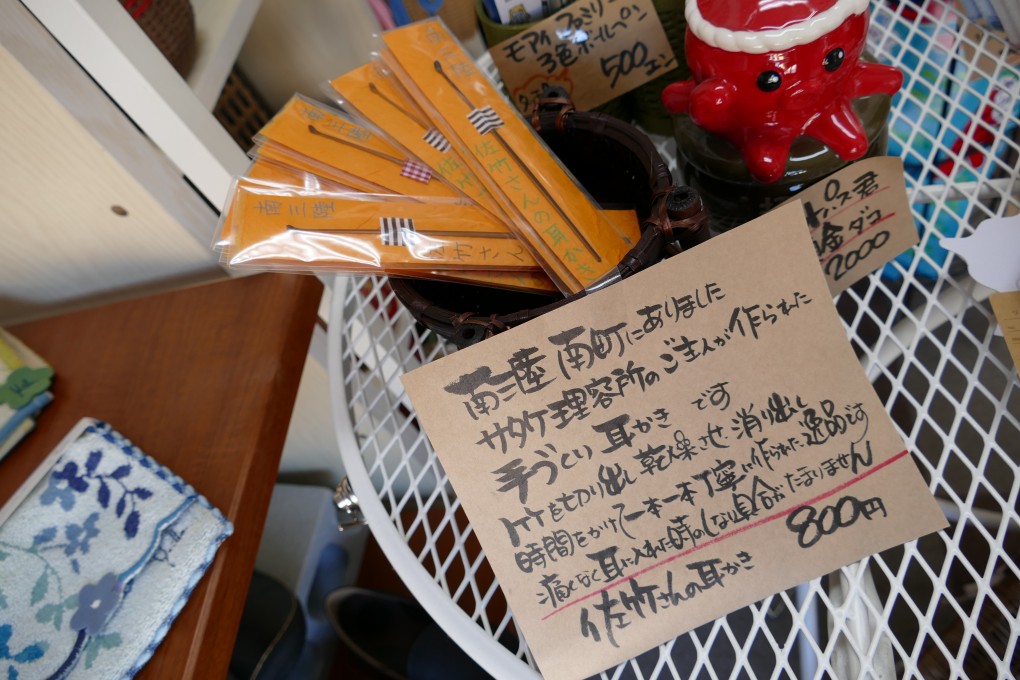 モアイファミリー
3色ボールペン
500エン
南三陸
佐竹さんの耳かき
南三陸
佐竹さん
パス君
合金ダコ
2000
南三陸 南町にありました
サタケ理容所のご主人が作られた
手づくり耳かき です
竹を切り出し 乾燥させ 消り出し
時間をかけて一本一本丁寧に作られた逸品です
痛くなく耳に入れた時のしなり具合がたまりません
佐竹さんの耳かき 800円